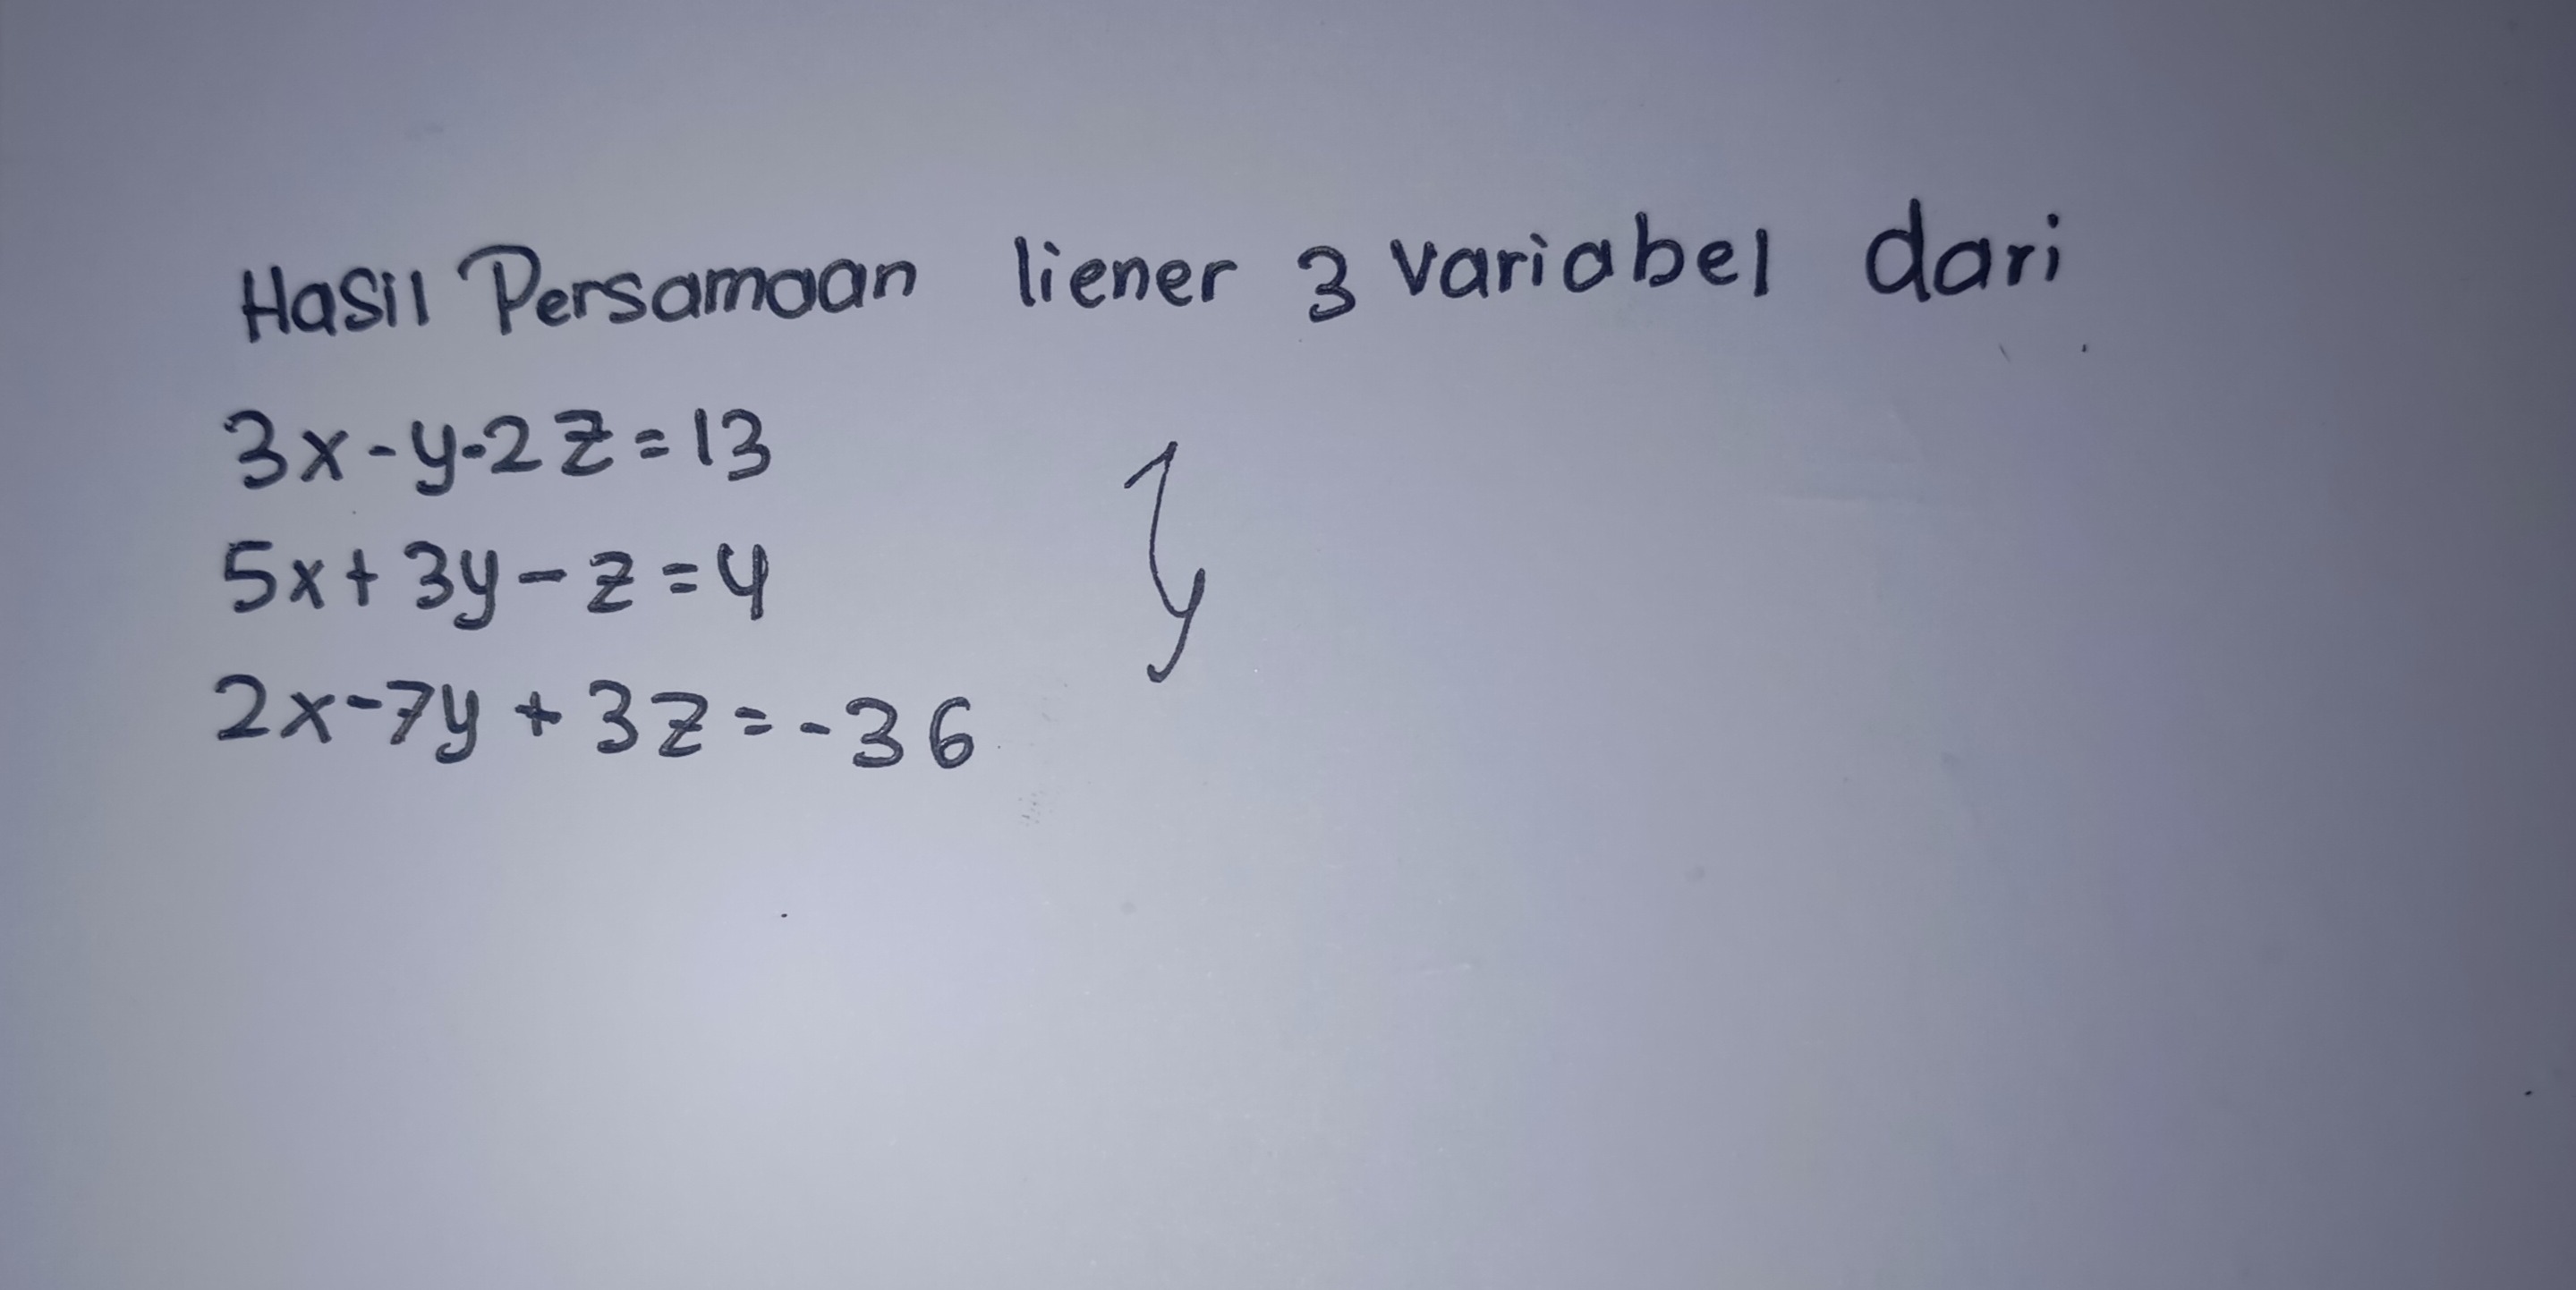 Hasil Persamaan liener 3 variabel dari
3x-y-2z=13
5x+3y-z=4
2x-7y+3z=-36